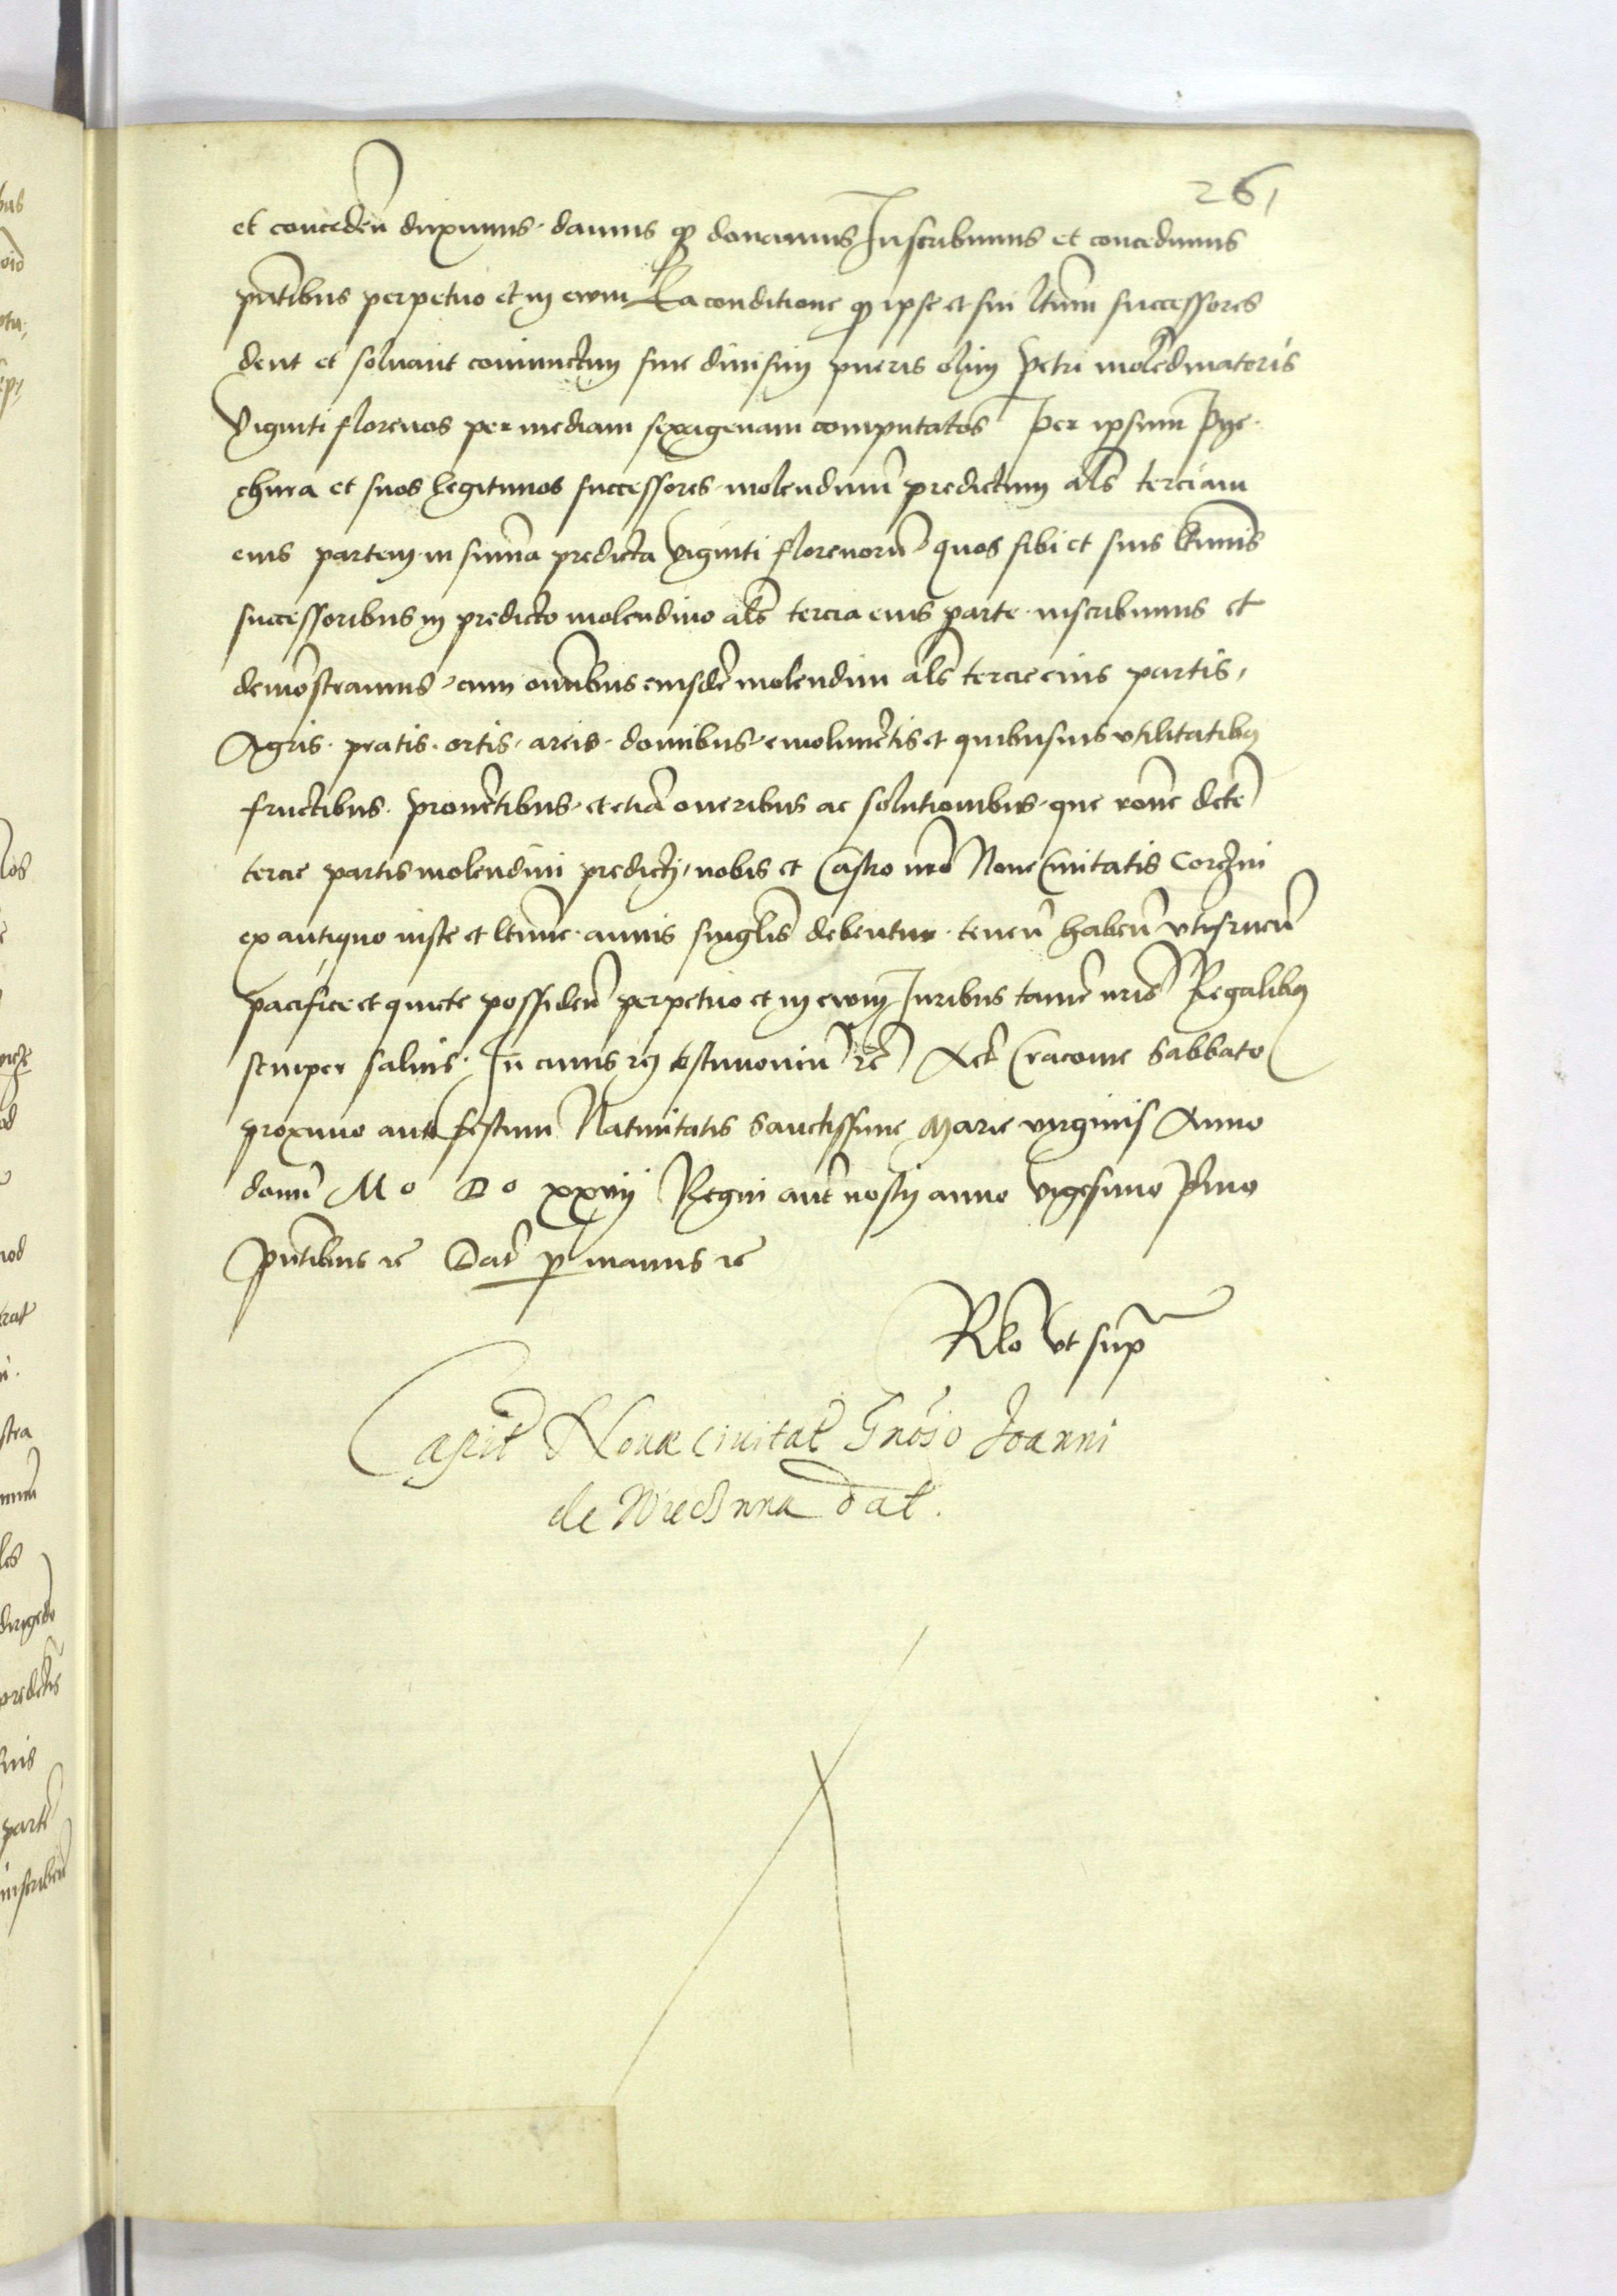 261
et conceden̄ duximus. damus q̄ donamus Inscribimus et concedimus
pn̄tibus perpetuo et in ewm Ea conditione q̄ ipse et sui ltīmi successores
dent et soluant coniunctim siue diuisim pueris olim Petri molēdinatoris
Viginti florenos per mediam sexagenam computatos Per ipsum Pye-
chura et suos legitimos successores molendinū predictum als̄ terciam
eius partem in sum̄a predicta Viginti florenorū quos sibi et suis ltīmis
successoribus in predicto molendino als̄ tercia eius parte inscribimus et
demōstramus, cum om̄ibus eiusdē molendini als̄ tercie eius partis,
Agris. pratis. ortis. areis. domibus. emolumētis et quibusuis vtilitatibq
fructibus. prouētibus. et etiā oneribus ac solutionibus. que rōne dicte
tercie partis molendini predicti, nobis et Castro nrō Noue Ciuitatis Corczin
ex antiquo iuste et ltīme. annis singlis̄ debentur. tenen̄ haben̄ vtifruen̄
pacifice et quiete possiden̄ perpetuo et in ewm Iuribus tamē nris̄ Regalibq
semper saluis. In cuius rei testimoniū rc̄ Act̄ Cracouie Sabbato
proximo ante festum Natiuitatis Sanctissime Marie virginis Anno
domī Mo Do xxvij Regni aut̄ nostri anno vigesimo p̄mo
Pn̄tibus rc̄ Dat̄ p manus rc̄
Rlō vt sup̄
Capit̄ Nouae Ciuitat̄ Gnōso Joanni
de Dat.